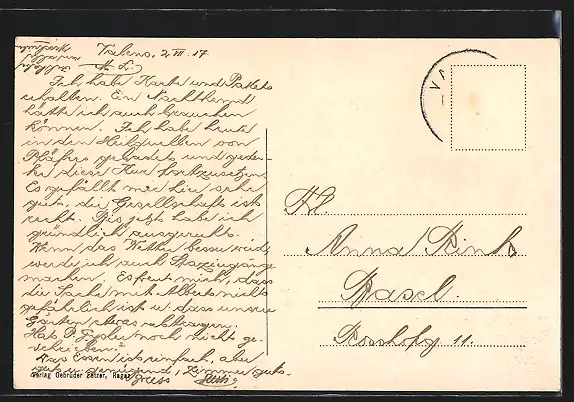 Valens, 2. VII. 17
M. L.
Ich habe Karte und Pakets
erhalten. Ein Nachthemd
hätte ich auch brauchen
können. Ich habe heute
in den Heilquellen von
Pfäfers gebadet und geden-
ke diese Kur fortzusetzen.
Es gefällt mir hier sehr
gut, die Gesellschaft ist
recht. Bis jetzt habe ich
gründlich ausgeruht.
Wenn das Wetter besser wird,
werde ich auch Spaziergänge
machen. Es freut mich, dass
die Sache mit Albert nicht
gefährlich ist u. dass unser
Garten etwas abtragen.
Hat P. noch nicht ge-
schrieben?
Das Essen ist einfach, aber
gut u. genügend, Zimmer gut.
Gruss
Verlag Gebrüder Zelzer, Ragaz
VA
Frl.
Anna Rink
Basel.
Rosshofg 11.